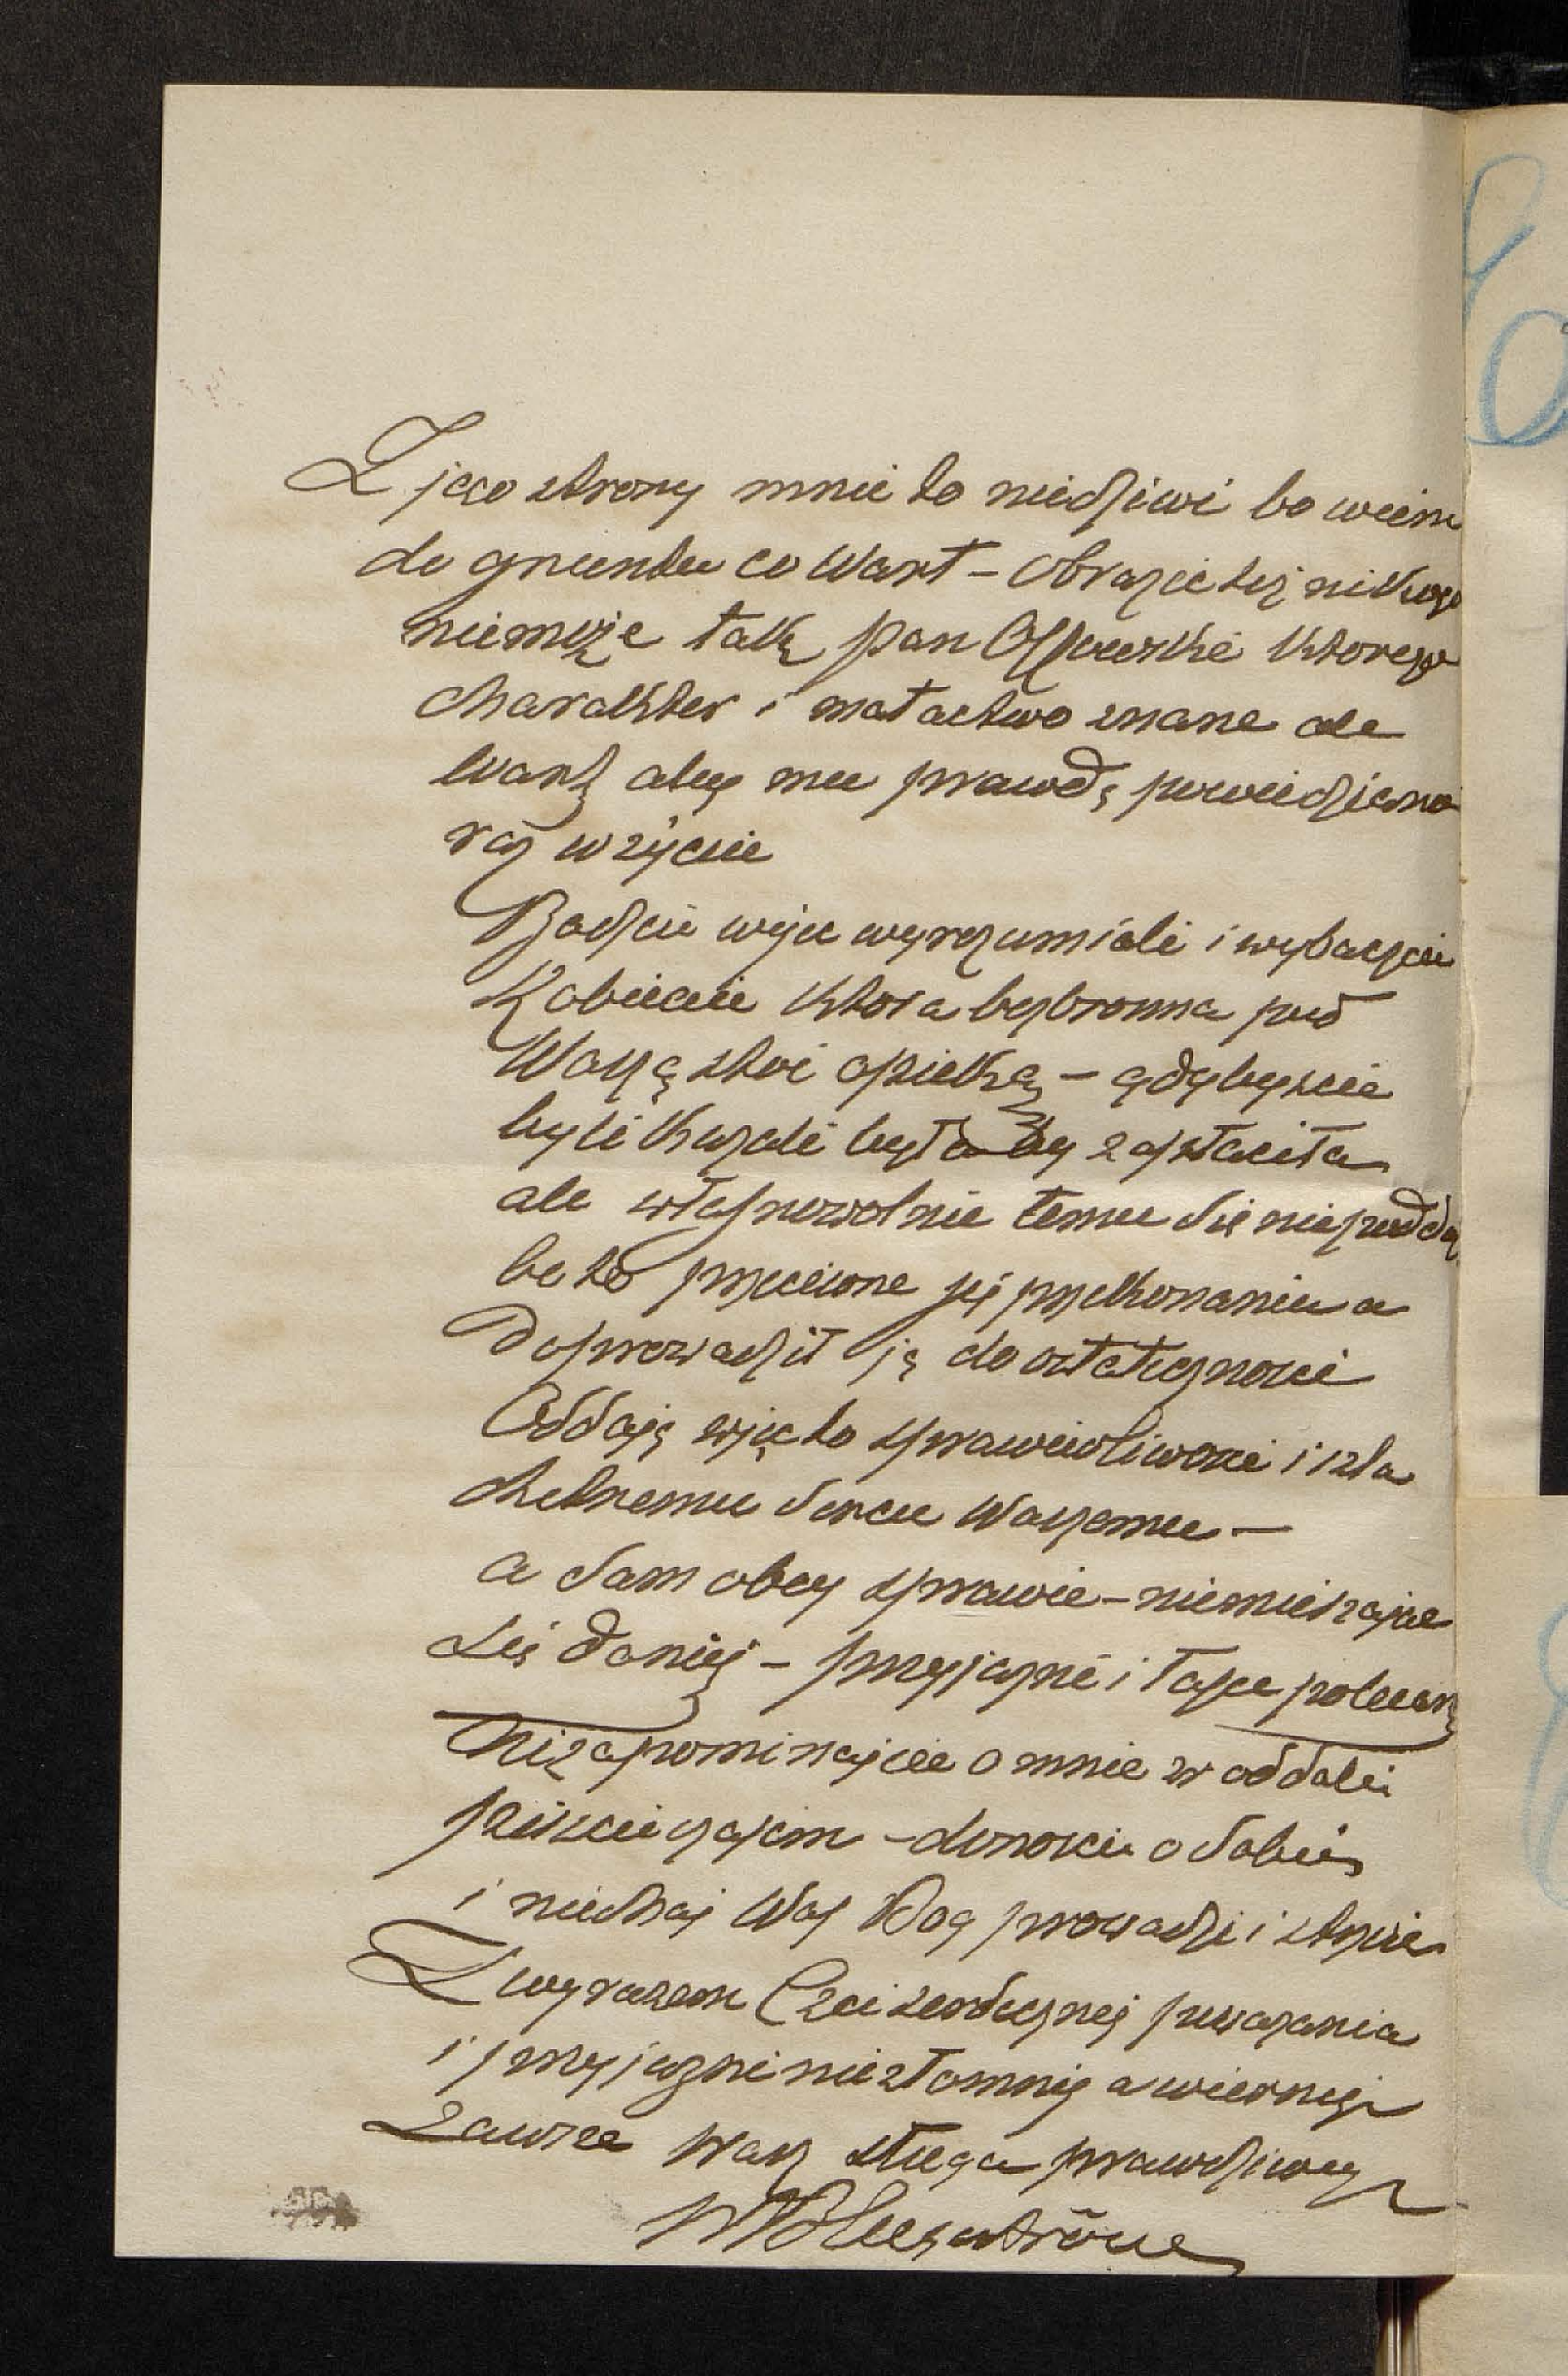 Z jego strony mnie to niedziwi bo wiem
do gruntu co Wart – Obrazić też nikogo
niemoże taki pan którego
charakter i matactwo znane ale
wart aby mu prawdę powiedziano
raz w życie
Bądzcie więc wyrozumiali i wybaczcie
Kobiecie ktora bezbronna pod
Waszą stoi opieką – gdybyscie
byli kazali była by zapłaciła
ale własnowolnie temu się niepodda
bo to przeciwne jej przekonaniu a
doprowadził ją do ostatecznosci
Oddaję więc to sprawiedliwosci i szla
chetnemu sercu Waszemu –
a sam obcy sprawie – niemieszając
się do niej – przyjazni i łasce polecam
Niezapominajcie o mnie w oddali
piszcie czasem – donoscie o sobie
i niechaj Was Bog prowadzi i strzeże
Z wyrazem Czci serdecznej powazania
i przyjazni niezłomnej a wiernej
Zawsze Wasz sługa prawdziwy